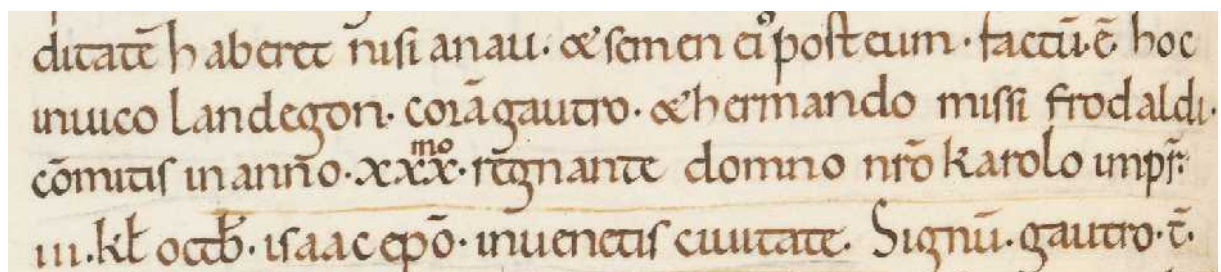 ditatē haberet nisi anau. & semen ei' post eum. factū. ē. hoc
inuico landegon. corā gautro. & hermando missi frodaldi.
cōmitis in anno. xxx^mo. regnante domno nr̄o karolo impr̄.
iii. kƚ octb̄. isaac ep̄o. inuenetis ciuitate. Signū. gautro. t̄.